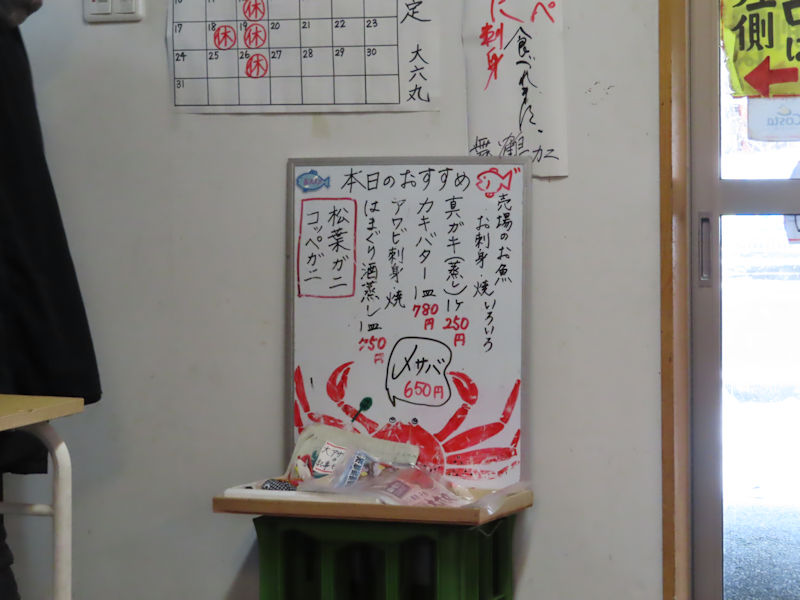 休
17 18 休 19 休 20 21 22 23
24 25 26 休 27 28 29 30
31
定
大六丸
ペ
に刺身
食べれます
舞鶴カニ
左側
Costa
本日のおすすめ
売場のお魚
お刺身・焼いろいろ
真ガキ(蒸し)1ケ 250円
カキバター 一皿 780円
アワビ刺身・焼
はまぐり酒蒸し 一皿 750円
松葉ガニ
コッペガニ
〆サバ
650円